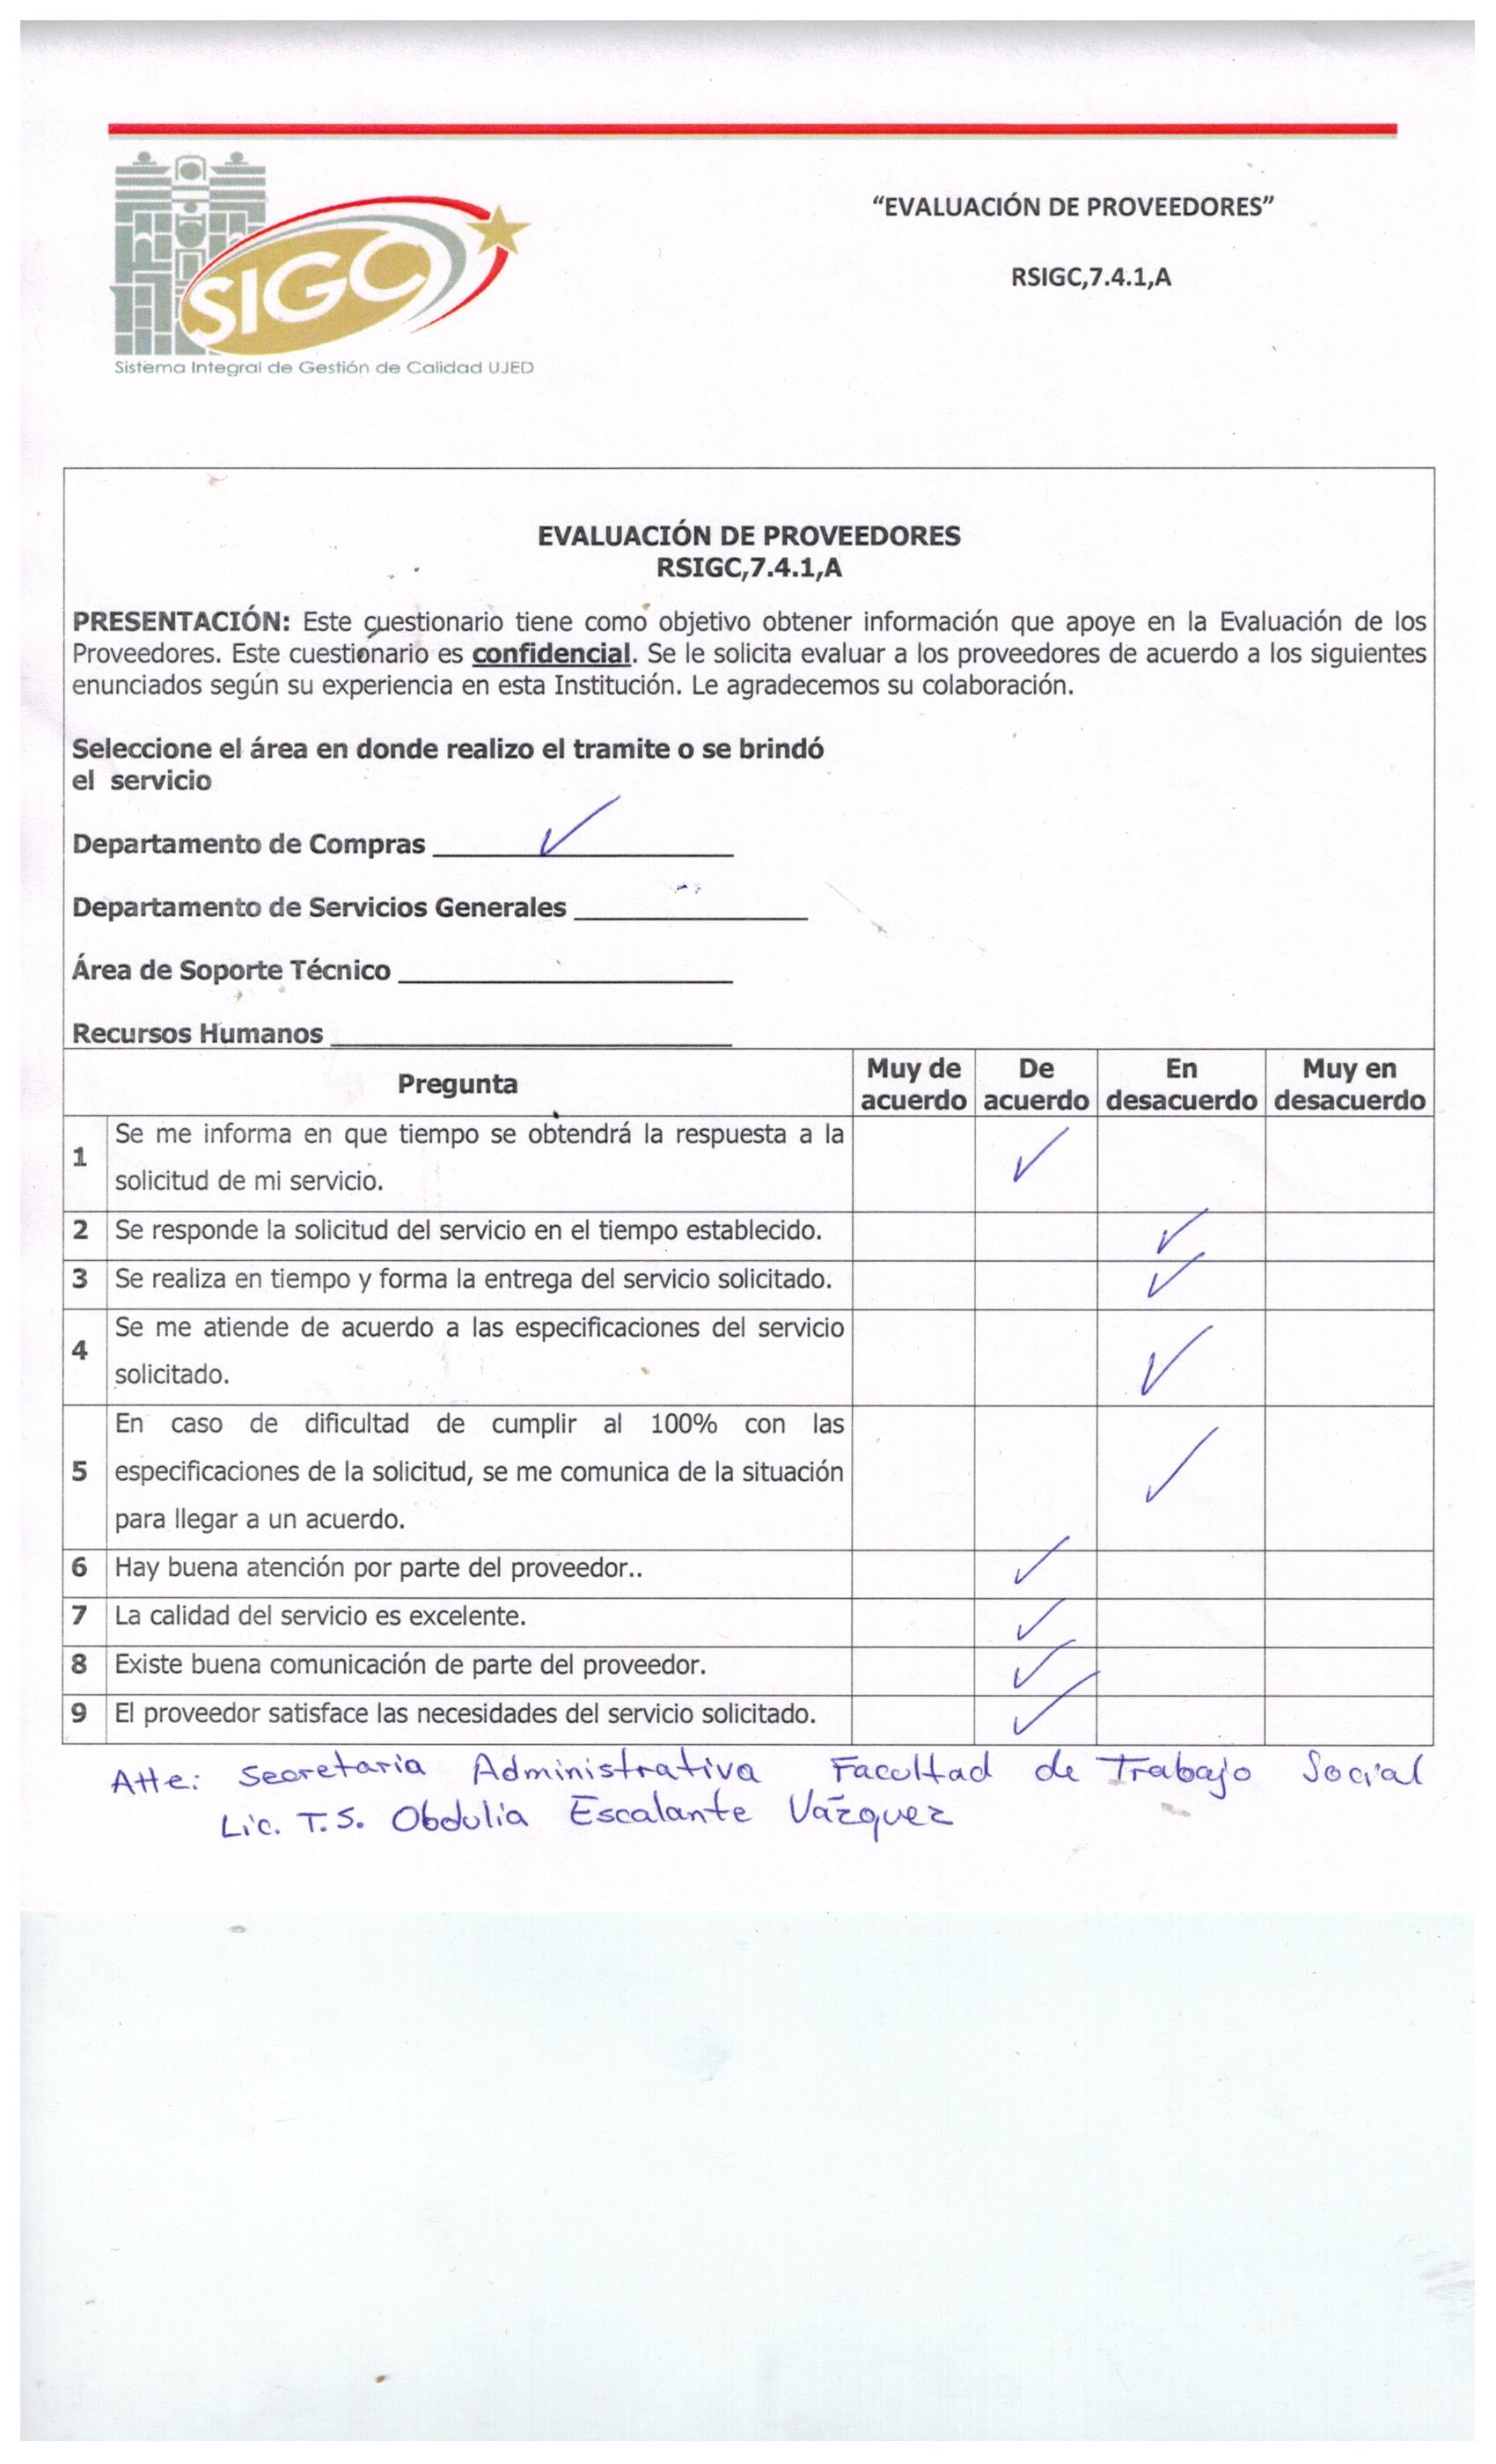 SIGC
Sistema Integral de Gestión de Calidad UJED
“EVALUACIÓN DE PROVEEDORES”
RSIGC,7.4.1,A
EVALUACIÓN DE PROVEEDORES
RSIGC,7.4.1,A
PRESENTACIÓN: Este cuestionario tiene como objetivo obtener información que apoye en la Evaluación de los
Proveedores. Este cuestionario es confidencial. Se le solicita evaluar a los proveedores de acuerdo a los siguientes
enunciados según su experiencia en esta Institución. Le agradecemos su colaboración.
Seleccione el área en donde realizo el tramite o se brindó
el servicio
Departamento de Compras ✓
Departamento de Servicios Generales
Área de Soporte Técnico
Recursos Humanos
Pregunta Muy de acuerdo De acuerdo En desacuerdo Muy en desacuerdo
1 Se me informa en que tiempo se obtendrá la respuesta a la
solicitud de mi servicio. ✓
2 Se responde la solicitud del servicio en el tiempo establecido. ✓
3 Se realiza en tiempo y forma la entrega del servicio solicitado. ✓
4 Se me atiende de acuerdo a las especificaciones del servicio
solicitado. ✓
5 En caso de dificultad de cumplir al 100% con las
especificaciones de la solicitud, se me comunica de la situación
para llegar a un acuerdo. ✓
6 Hay buena atención por parte del proveedor.. ✓
7 La calidad del servicio es excelente. ✓
8 Existe buena comunicación de parte del proveedor. ✓
9 El proveedor satisface las necesidades del servicio solicitado. ✓
Atte: Secretaria Administrativa Facultad de Trabajo Social
Lic. T.S. Obdulia Escalante Vázquez